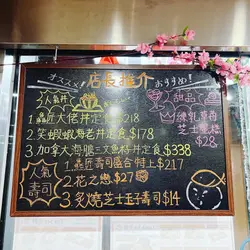 オススメ!
店長推介
おすすめ!
人氣丼
1.轟匠大佬丼定食$218
2.笑蝦蝦海老丼定食$178
3.加拿大海膽三文魚丼定食$338
甜品
煉乳草莓
芝士蛋糕
$28
人氣
壽司
1.轟匠壽司盛合特上$217
2.花之戀$27
3.炙燒芝士玉子壽司$14